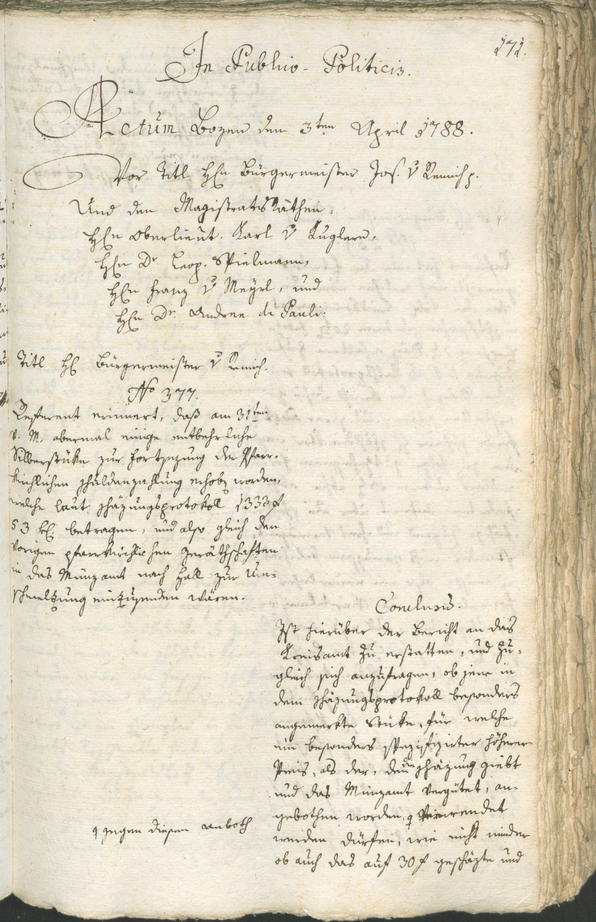 171.
In Publico-Politicis.
Actum Bozen den 3ten April 1788.
Vor Titl Hrn Bürgermeister Jos. v Remich p.
Und den Magistratsräthen,
Hrn Oberlieut. Karl v Kuglern,
Hrn Dr Leop. Spielmann,
Hrn Franz v Mayrl, und
Hrn Dr. Andree di Pauli.
Titl H. Bürgermeister v Remich.
No 377.
Referent erinnert, daß am 31ten
v. M. abermal einige entbehrliche
Silberstüke zur Fortsezung der Pfarr-
kirchlichen Schuldenzahlung erhoben worden,
welche laut Schäzungsprotokoll 1333 f
53 kr betragen, und also gleich den
vorigen pfarrkirchlichen Geräthschaften
in das Münzamt nach Hall zur Ver-
schmelzung einzusenden wären.
Conclusum.
Ist hierüber der Bericht an das
Kreisamt zu erstatten, und zu-
gleich sich anzufragen, ob jene in
dem Schäzungsprotokoll besonders
angemerkte Stüke, für welche
ein besonders spezifizirter höherer
Preis, als der, den Schäzung giebt
und das Münzamt vergütet, an-
gebothen worden, verwendet
werden dürfen, wie nicht minder
ob auch das auf 30 f geschäzte und
gegen diesen Anboth